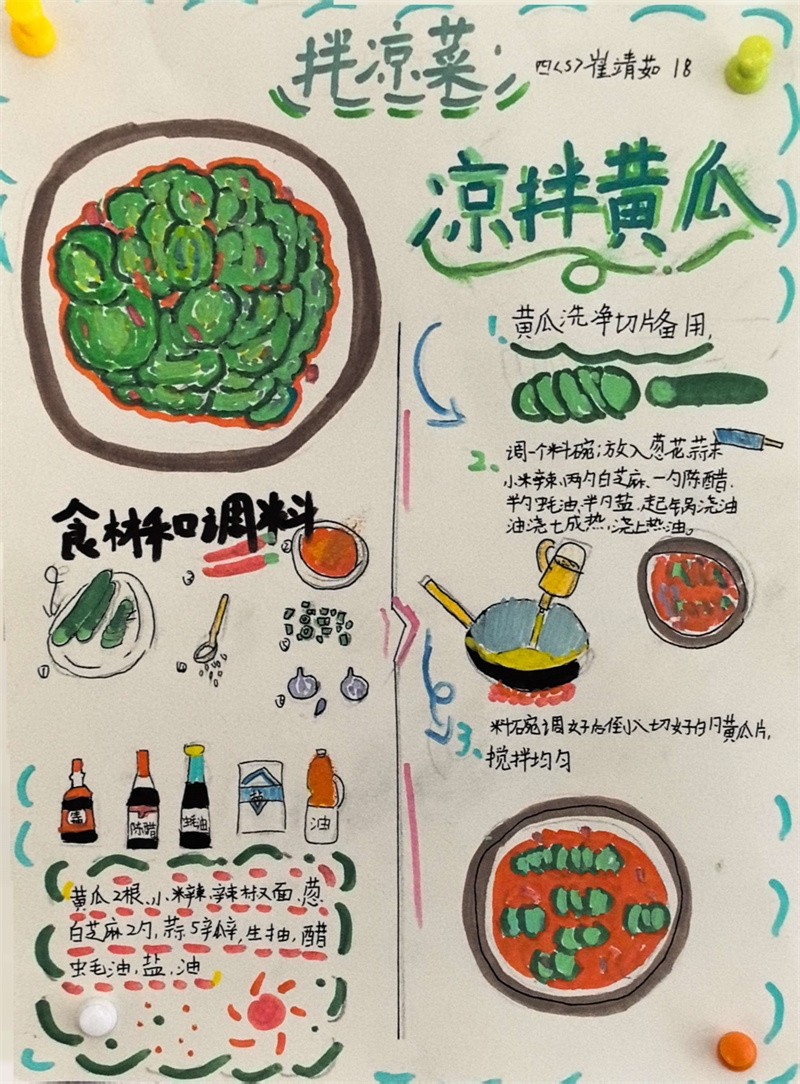 拌凉菜
四(5)崔靖茹 18
凉拌黄瓜
1. 黄瓜洗净切片备用,
2. 调一个料碗;放入葱花蒜末
小米辣、两勺白芝麻、一勺陈醋、
半勺蚝油、半勺盐、起锅浇油
油浇七成热,浇上热油。
3. 料碗调好后倒入切好的黄瓜片,
搅拌均匀
食材和调料
②
③
④
⑤
①
陈醋
蚝油
盐
油
黄瓜2根、小米辣、辣椒面、葱、
白芝麻2勺,蒜5瓣,生抽,醋
蚝油,盐,油